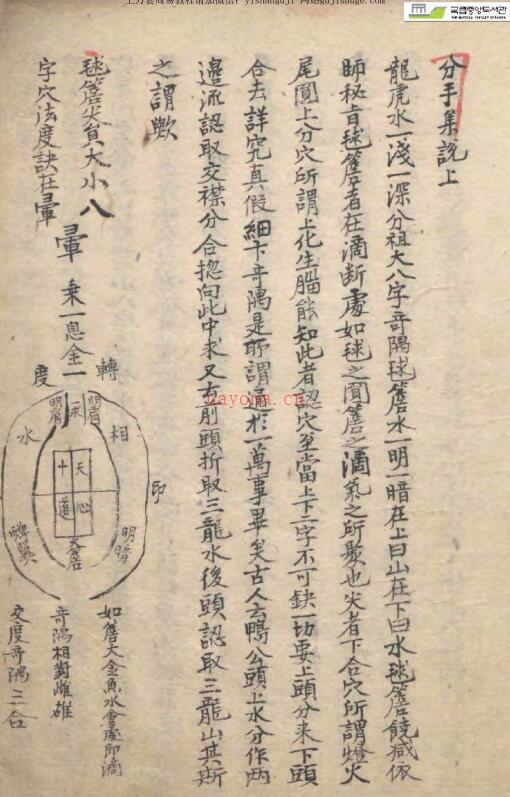 국립중앙도서관
THE NATIONAL LIBRARY OF KOREA
分手集說上
龍虎水一淺一深分祖大八字奇隅毬簷水一明一暗在上曰山在下曰水毬簷饒减依
師秘旨毬簷者在滴斷處如毬之圓簷之滴氣之所聚也尖者下合穴所謂燈火
尾圓上分穴所謂上化生腦能知此者認穴至當上下二字不可缺一切要上頭分來下頭
合去詳究真假細卞奇隅是所謂通於一萬事畢矣古人云鴨公頭上水分作兩
邊流認取交襟分合揔向此中求又云前頭折取三龍水後頭認取三龍山其斯
之謂歟
毬簷尖負大小八
字穴法度訣在暈
暈
乘一息金一
轉
度
明暗
一求
明暗
水
相
印
天心
十道
尖簷
蟬翼
明暗
如簷大金魚水會處即滴
奇隅相對雌雄
交度奇隅三合
nayona.cn